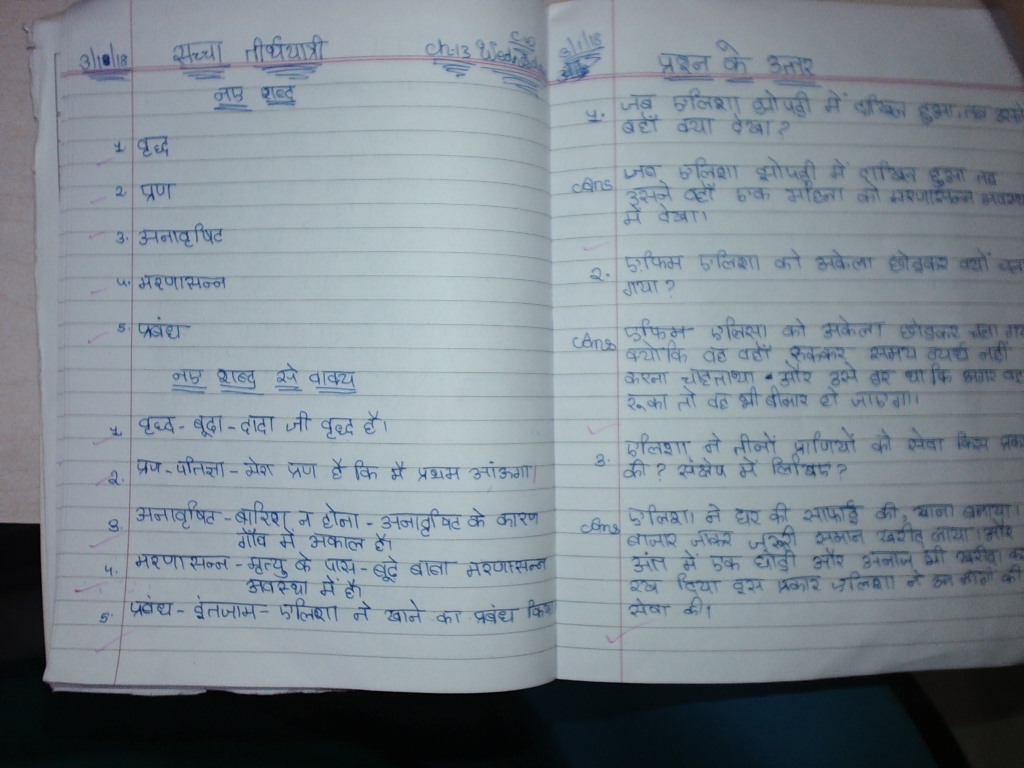 3/10/18 सच्चा तीर्थयात्री Ch-13
नए शब्द
1. वृद्ध
2. प्रण
3. अनावृष्टि
4. मरणासन्न
5. प्रबंध
नए शब्द से वाक्य
1. वृद्ध - बूढ़ा - दादा जी वृद्ध है।
2. प्रण - प्रतिज्ञा - मेरा प्रण है कि मै प्रथम आंऊगा।
3. अनावृष्टि - बारिश न होना - अनावृष्टि के कारण
गाँव में अकाल है।
4. मरणासन्न - मृत्यु के पास - बूढ़े बाबा मरणासन्न
अवस्था में है।
5. प्रबंध - इंतजाम - एलिशा ने खाने का प्रबंध किया
प्रश्न के उत्तर
1. जब एलिशा झोपड़ी में दाखिल हुआ, तब उसने
वहाँ क्या देखा?
Ans जब एलिशा झोपड़ी में दाखिल हुआ तब
उसने वहाँ एक महिला को मरणासन्न अवस्था
में देखा।
2. एफिम एलिशा को अकेला छोड़कर क्यों चला
गया?
Ans एफिम एलिसा को अकेला छोड़कर चला गया
क्योकि वह वहाँ रुककर समय व्यर्थ नहीं
करना चाहताथा और उसे डर था कि अगर वह
रूका तो वह भी बीमार हो जाएगा।
3. एलिशा ने तीनों प्राणियों की सेवा किस प्रकार
की? संक्षेप में लिखिए?
Ans एलिशा ने घर की साफाई की, खाना बनाया।
बाजार जाकर जरूरी समान खरीद लाया। और
अंत में एक घोड़ी और अनाज भी खरीद कर
रख दिया इस प्रकार एलिशा ने उन लोगो की
सेवा की।